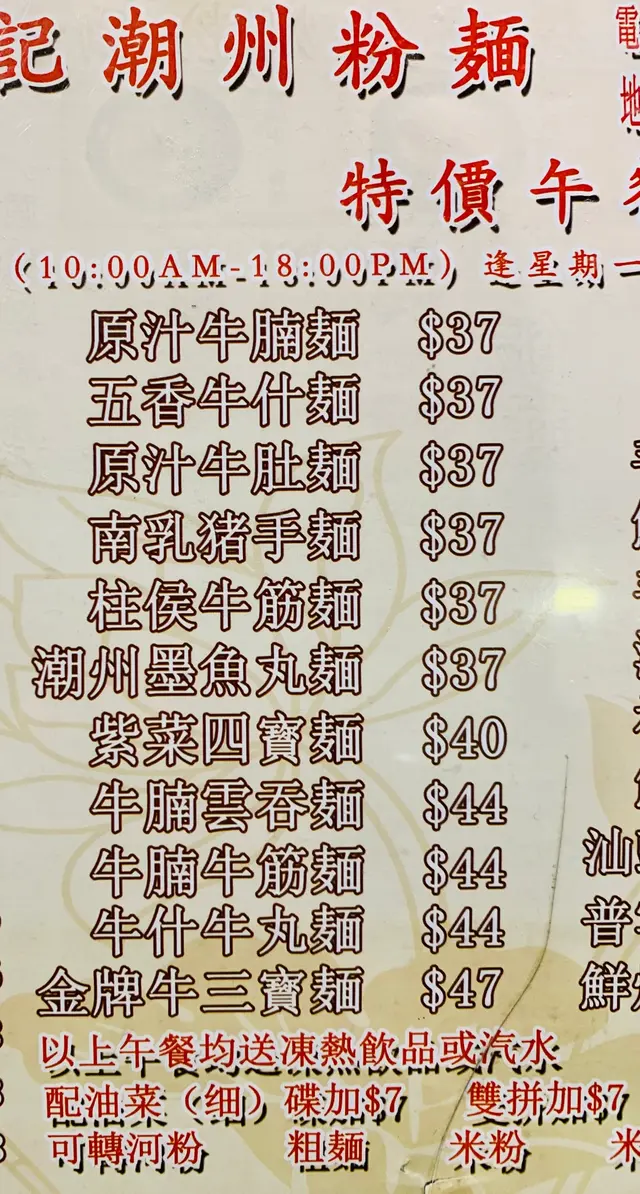 記潮州粉麵
電
地
特價午
(10:00AM-18:00PM) 逢星期一
原汁牛腩麵 $37
五香牛什麵 $37
原汁牛肚麵 $37
南乳猪手麵 $37
柱侯牛筋麵 $37
潮州墨魚丸麵 $37
紫菜四寶麵 $40
牛腩雲吞麵 $44
牛腩牛筋麵 $44
汕
牛什牛丸麵 $44
普
金牌牛三寶麵 $47
鮮
以上午餐均送凍熱飲品或汽水
配油菜（细）碟加$7 雙拼加$7
可轉河粉 粗麵 米粉 米